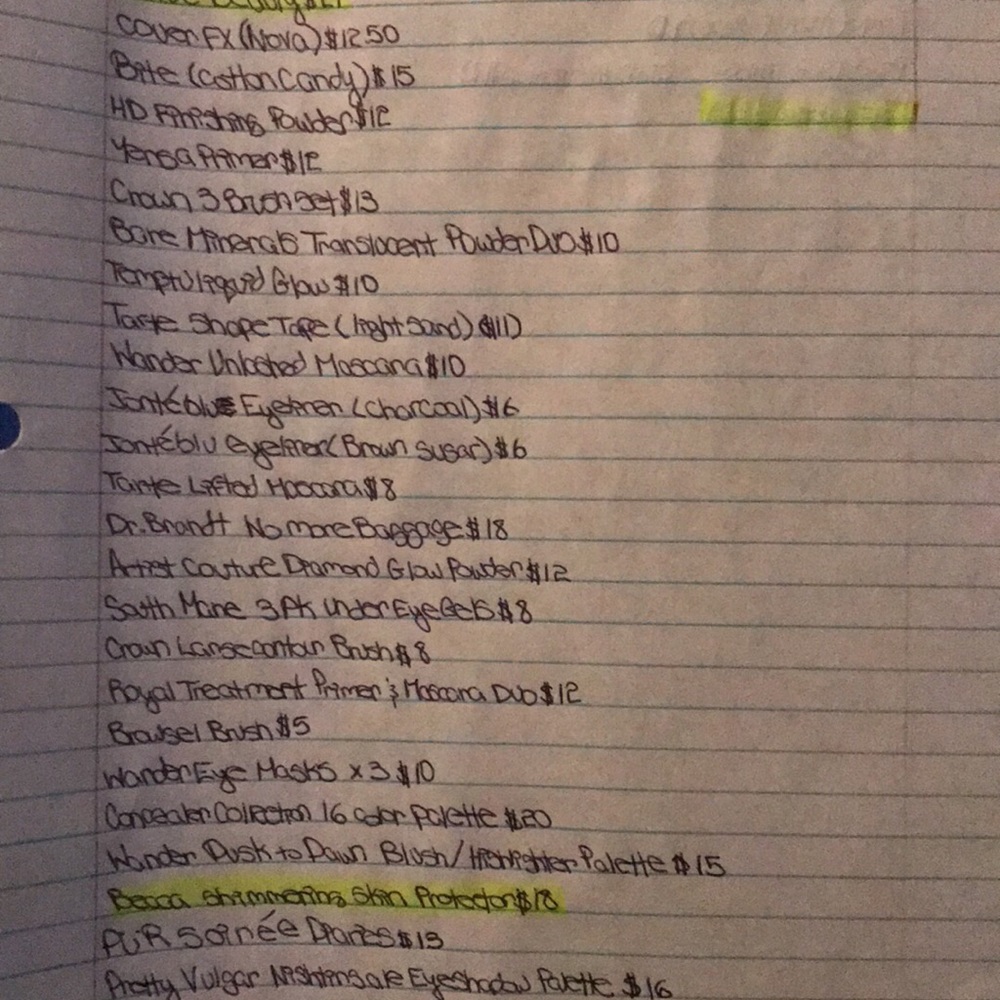 Cover FX (Nova) $12.50
Bite (Cotton Candy) $15
HD Finishing Powder $12
Yensa Primer $12
Crown 3 Brush Set $13
Bare Minerals Translucent Powder Duo $10
Temptu liquid Glow $10
Tarte Shape Tape (light Sand) $11
Wander Unlashed Mascara $10
Jontéblu Eyeliner (Charcoal) $6
Jontéblu eyeliner (Brown Sugar) $6
Tarte Lifted Mascara $8
Dr. Brandt No more Baggage $18
Artist Couture Diamond Glow Powder $12
South Mane 3 Pk Under Eye Gels $8
Crown Large contour Brush $8
Royal Treatment Primer & Mascara Duo $12
Brush $5
Wander Eye Masks x 3 $10
Concealer Collection 16 color palette $20
Wander Dusk to Dawn Blush/Highlighter Palette $15
Becca Shimmering Skin Protector $18
PÜR Soirée Diaries $13
Pretty Vulgar Nightingale Eyeshadow Palette $16